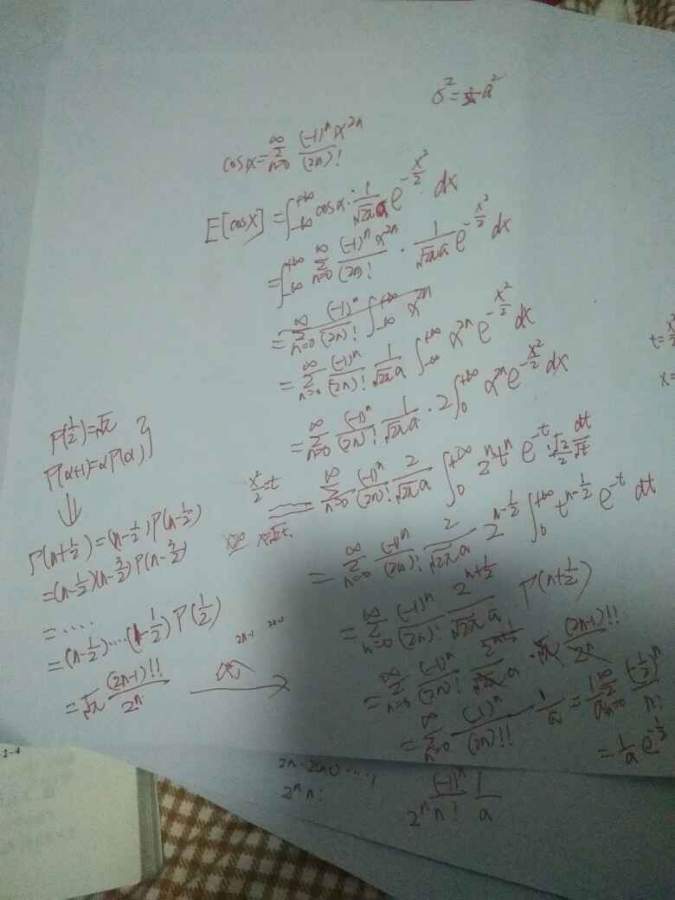 σ²=½a²
cosx=∞Σn=0 (-1)ⁿx²ⁿ/(2n)!
E[cosX]=∫₋∞⁺∞ cosx·1/√2π a e^(-x²/2) dx
=∫₋∞⁺∞ ∞Σn=0 (-1)ⁿx²ⁿ/(2n)! · 1/√2π a e^(-x²/2) dx
=∞Σn=0 (-1)ⁿ/(2n)! ∫₋∞⁺∞ x²ⁿ
=∞Σn=0 (-1)ⁿ/(2n)! 1/√2π a ∫₋∞⁺∞ x²ⁿ e^(-x²/2) dx
=∞Σn=0 (-1)ⁿ/(2n)! 1/√2π a · 2∫₀⁺∞ x²ⁿe^(-x²/2) dx
x²/2=t
=∞Σn=0 (-1)ⁿ/(2n)! 2/√2π a ∫₀⁺∞ 2ⁿtⁿ e^(-t) · √2/2 dt/√t
=∞Σn=0 (-1)ⁿ/(2n)! 2/√2π a 2^(n-1/2) ∫₀⁺∞ t^(n-1/2) e^(-t) dt
=∞Σn=0 (-1)ⁿ/(2n)! 2^(n+1/2)/√2π a Γ(n+1/2)
=∞Σn=0 (-1)ⁿ/(2n)! 2^(n+1/2)/√2π a · √π (2n-1)!!/2ⁿ
=∞Σn=0 (-1)ⁿ/(2n)!! · 1/a = 1/a ∞Σn=0 (-1/2)ⁿ/n!
=1/a e^(-1/2)
Γ(1/2)=√π
Γ(α+1)=αΓ(α) }
⇓
Γ(n+1/2)=(n-1/2)Γ(n-1/2)
=(n-1/2)(n-3/2)Γ(n-3/2)
=....
=(n-1/2)...(1-1/2)Γ(1/2)
=√π (2n-1)!!/2ⁿ
t=x²/2
x=
2ⁿn!
(-1)ⁿ/2ⁿn! 1/a